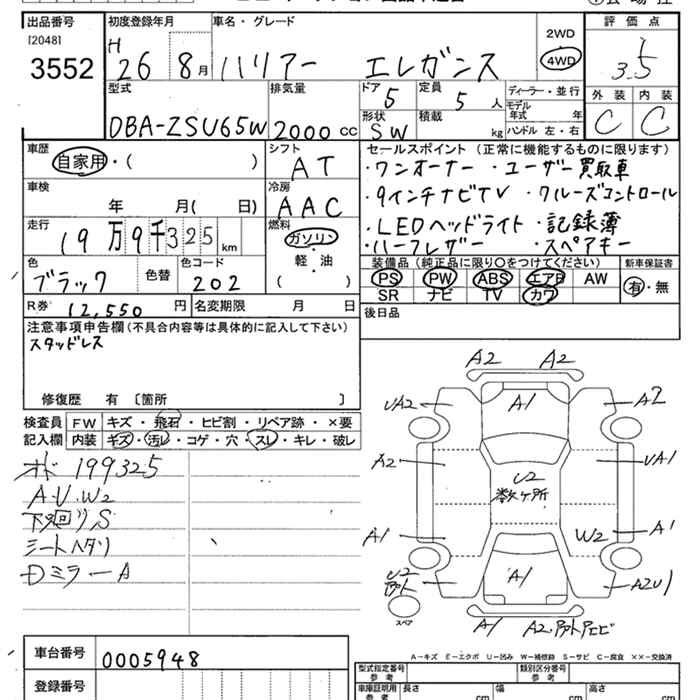 出品番号 初度登録年月 車名・グレード 評価点
[2048]
3552
H 26 8月 ハリアー エレガンス 2WD 4WD 3.5
型式 排気量 ドア 定員 ディーラー・並行 外装 内装
5 5人 モデル年式 年式
DBA-ZSU65W 2000cc 形状 SW 積載 kg ハンドル 左・右 C C
車歴 シフト セールスポイント (正常に機能するものに限ります)
自家用・( ) AT ・ワンオーナー ・ユーザー買取車
車検 冷房 ・9インチナビTV ・クルーズコントロール
年 月( 日) AAC ・LEDヘッドライト ・記録簿
走行 燃料 ・ハーフレザー ・スペアキー
19万9千325km ガソリン 軽・油 ( )
色 色替 色コード 装備品 (純正品に限り○をつけてください) 新車保証書
ブラック 202 PS PW ABS エアB AW 有・無
SR ナビ TV カワ
R券 12,550円 名変期限 月 日 後日品
注意事項申告欄(不具合内容等は具体的に記入して下さい)
スタッドレス
修復歴 有 〔箇所 〕
検査員記入欄 FW キズ・飛石・ヒビ割・リペア跡・×要
内装 キズ・汚レ・コゲ・穴・スレ・キレ・破レ
オド 199325
A.U.W2
下廻リS
シートヘタリ
Dミラー A
A2 A2
UA2 A1 A2
A2 U2 数ヶ所 UA1
A1 W2 A1
U2 A1 A2U1
スペア
A1 A2.
A−キズ E−エクボ U−凹み W−補修跡 S−サビ C−腐食 ××−交換済
車台番号 0005948 型式指定番号 参考 類別区分番号 参考
登録番号 車庫証明用 参考 長さ cm 幅 cm 高さ cm